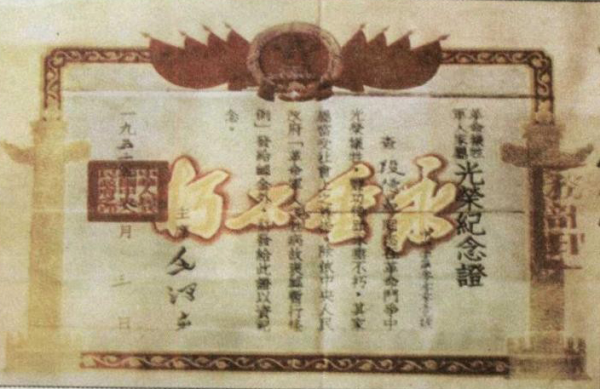 革命犧牲
軍人家屬
光榮紀念證
查段
同志在革命鬥爭中
光榮犧牲,豐功偉績永垂不朽,其家
屬當受社會之尊崇。除依中央人民
政府「革命軍人犧牲病故褒恤暫行條
例」發給卹金外,並發給此證以資紀
念。
主席 毛澤东
一九五 年 月 日
永垂不朽